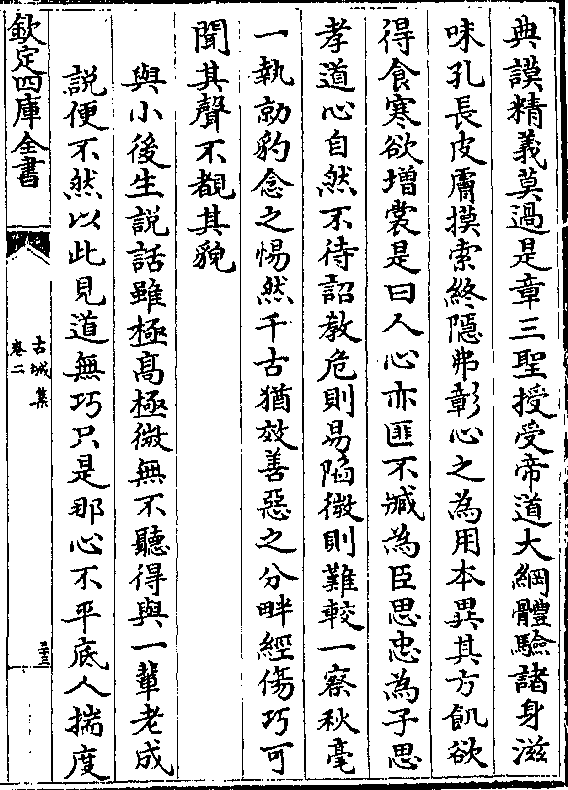 典謨精義莫過是章三聖授受帝道大綱體驗諸身滋
味孔長皮膚摸索終隱弗彰心之為用本異其方飢欲
得食寒欲增裳是曰人心亦匪不臧為臣思忠為子思
孝道心自然不待詔教危則易陷微則難較一察秋毫
一執勍豹念之惕然千古猶效善惡之分畔經傷巧可
聞其聲不覩其貌
與小後生説話雖極高極微無不聽得與一輩老成
説便不然以此見道無巧只是那心不平底人揣度
欽定四庫全書
古城集
卷二
三十三